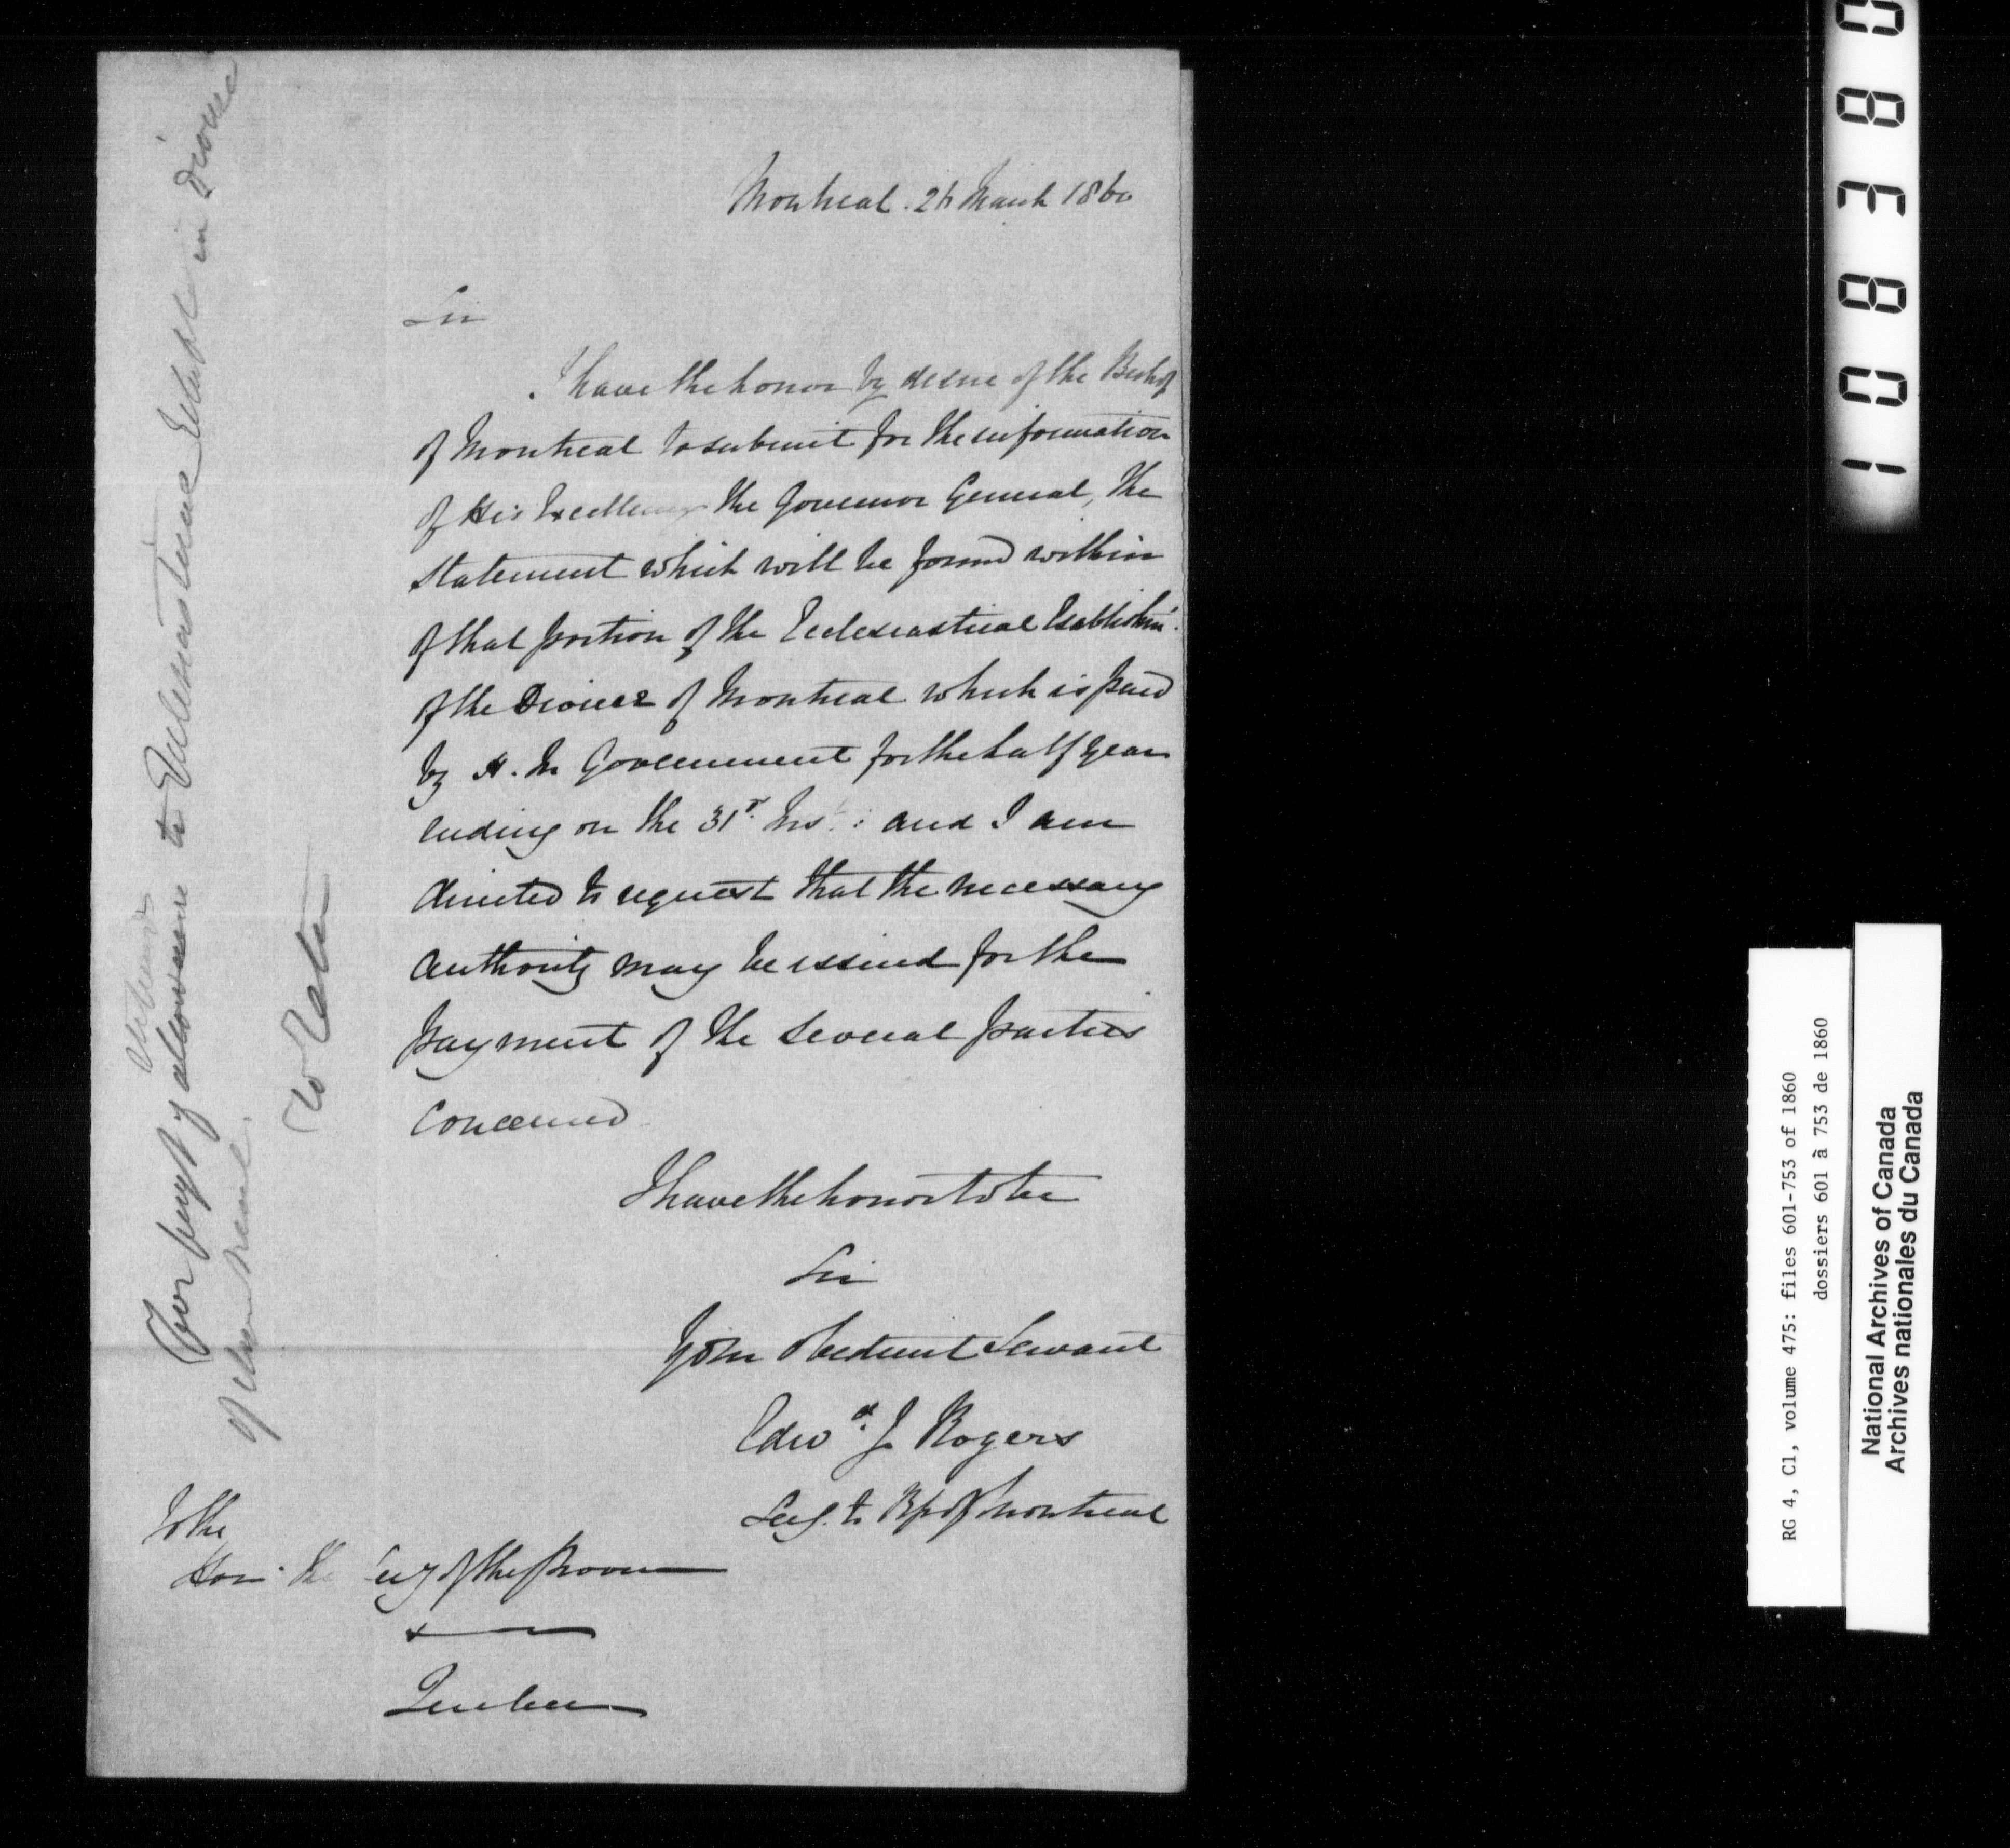 Montreal. 26 March 1860
Sir
I have the honor by desire of the Bishop
of Montreal to submit for the information
of His Excellency the Governor General, the
statement which will be found within
of that portion of the Ecclesiastical Establishmt.
of the Diocese of Montreal which is paid
by H. M Government for the half year
ending on the 31st. Inst: and I am
directed to request that the necessary
authority may be issued for the
payment of the several parties
concerned
I have the honor to be
Sir
Your obedient Servant
Edwd. J Rogers
Secy. to Bp of Montreal
To the
Hon. the Secy of the Province
Quebec
For paymt of allowance to Ecclesiastical Establt in Diocese
of Montreal.
RG 4, C1, volume 475: files 601-753 of 1860
dossiers 601 à 753 de 1860
National Archives of Canada
Archives nationales du Canada
108380